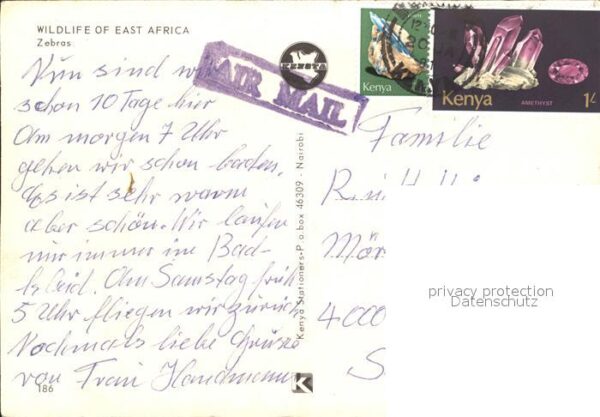 WILDLIFE OF EAST AFRICA
Zebras
Nun sind wir
schon 10 Tage hir
Am morgen 7 Uhr
gehen wir schon baden.
Es ist sehr warm
aber schön. Wir laufen
nur immer im Bad-
kleid. Am Samstag früh
5 Uhr fliegen wir zurück
Nochmals liebe Grüsse
von Frau Handmann
186
KENSTA
AIR MAIL
Kenya Stationers-P o box 46309 - Nairobi
K
Kenya
Kenya
AMETHYST
1/-
Familie
Mör
4000
S
privacy protection
Datenschutz